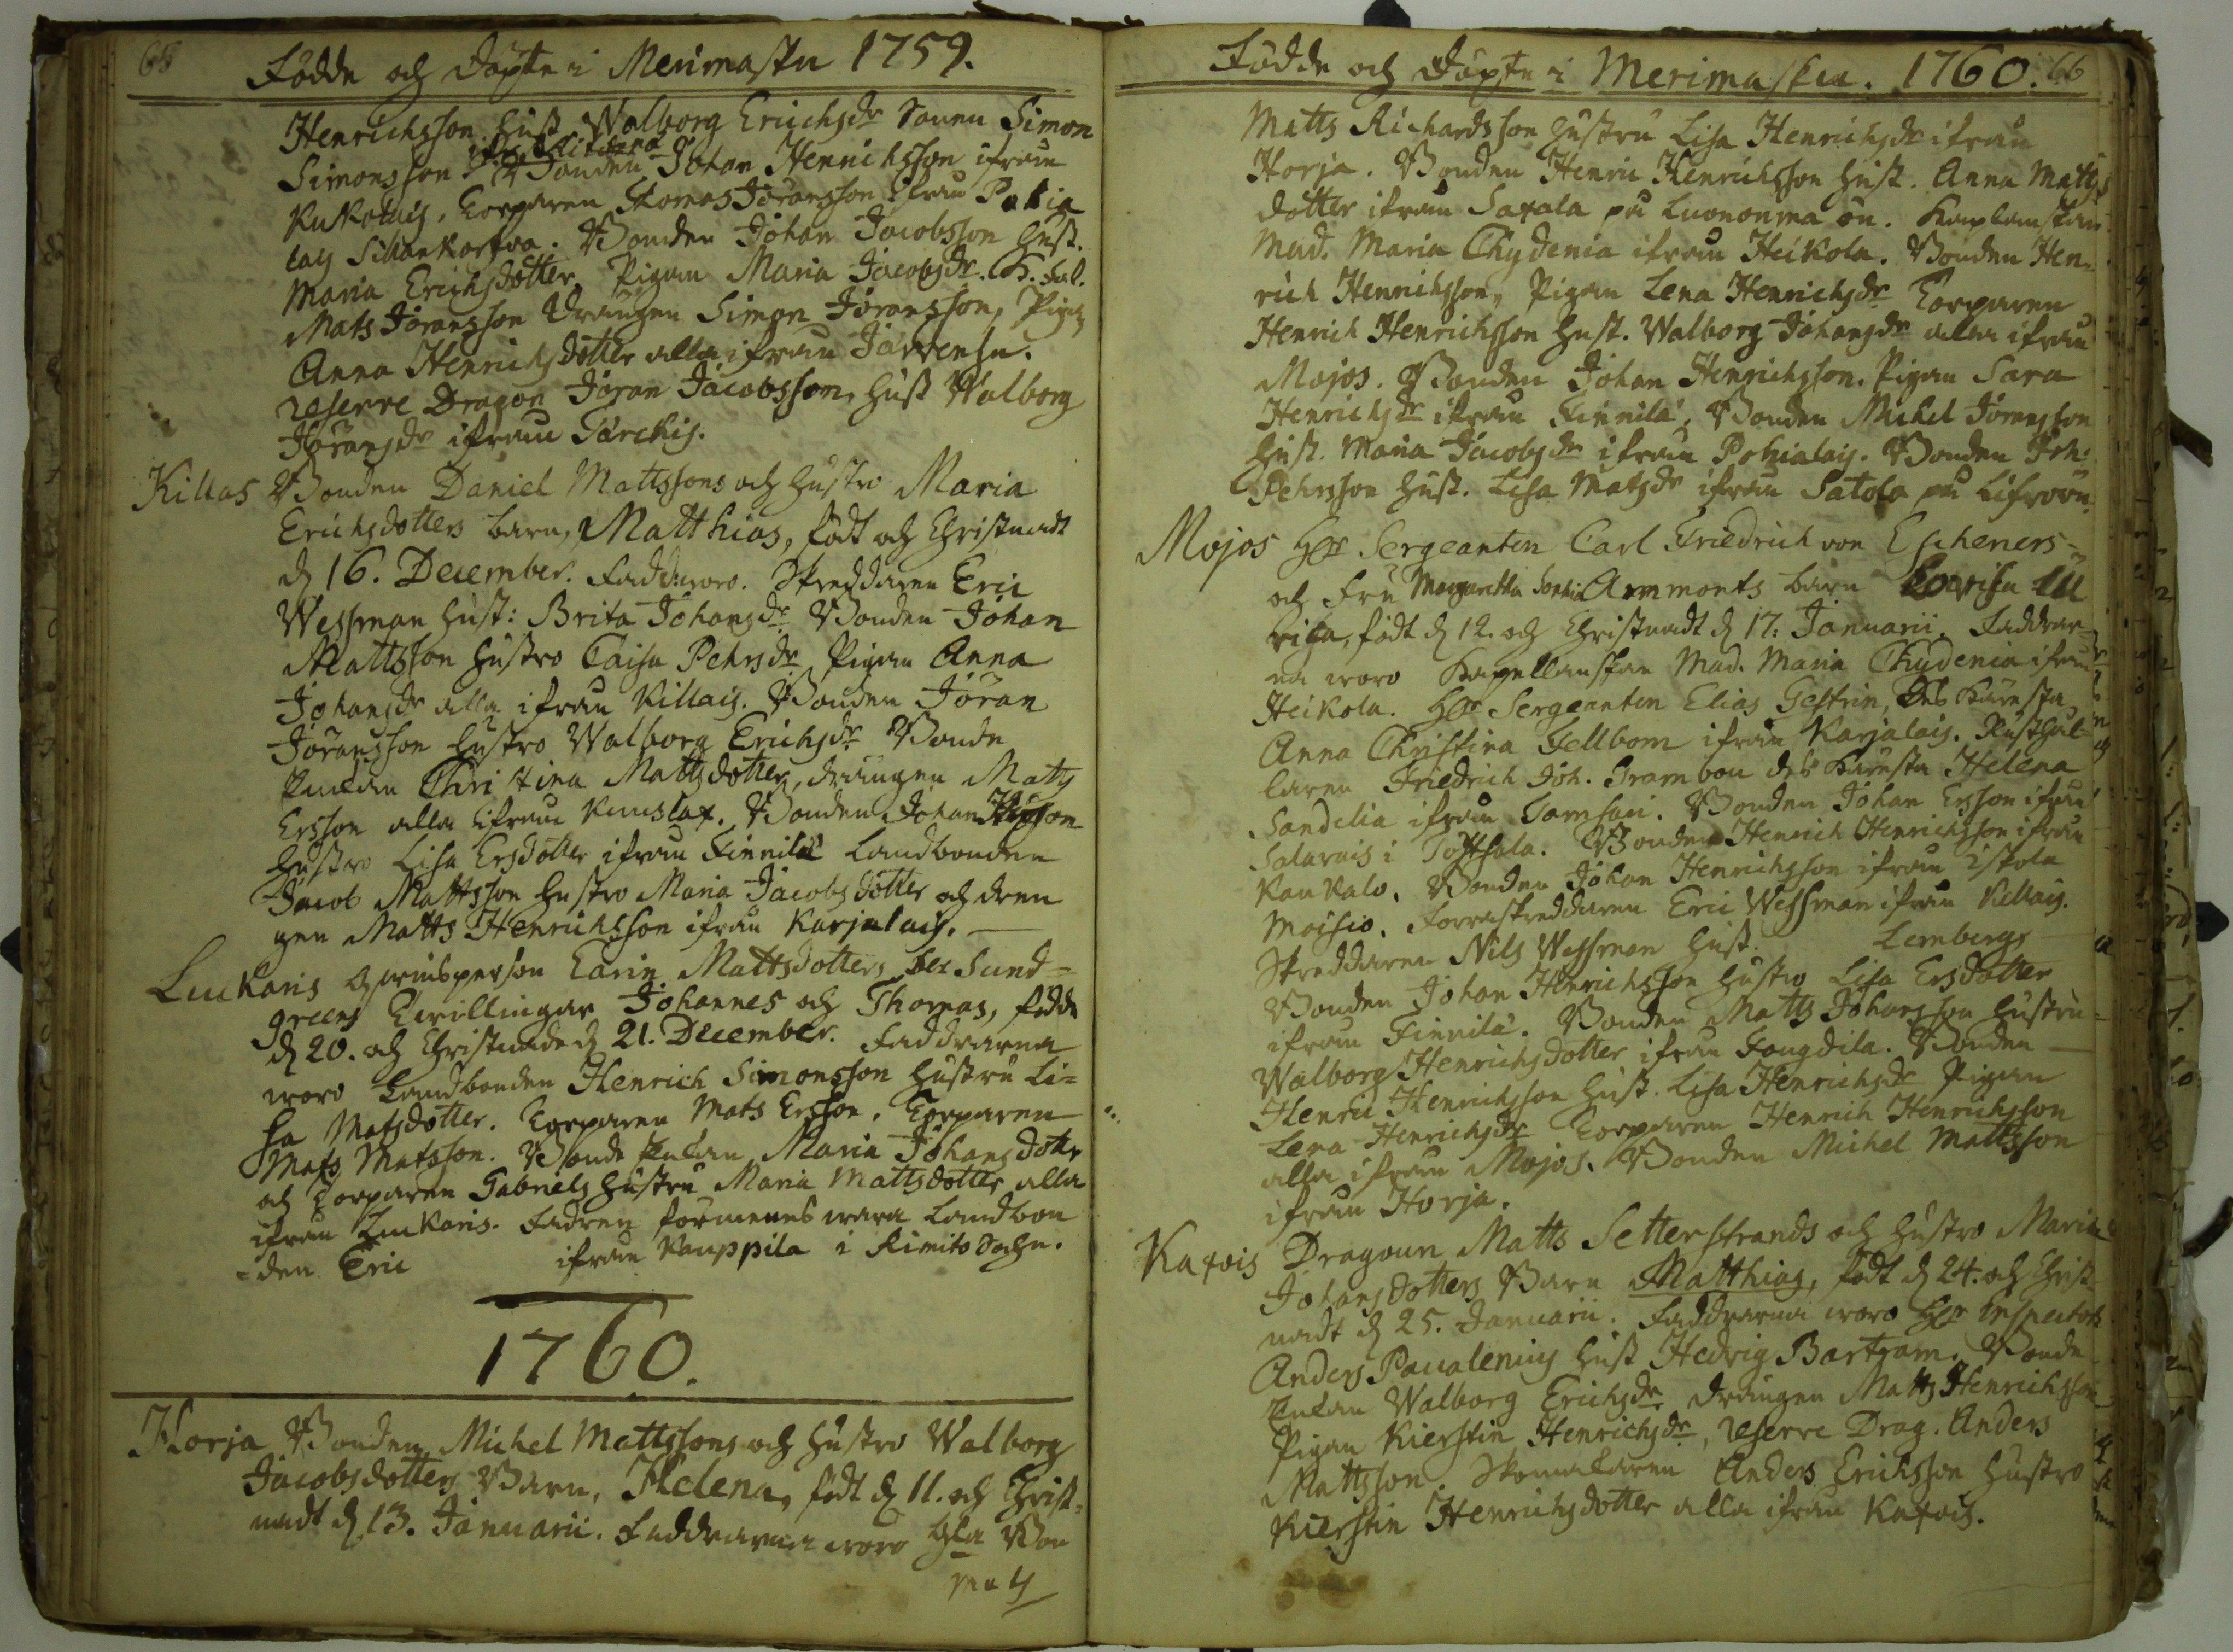 65
Födde och Döpte i Merimasku 1759.
Henrichsson hust. Walborg Erichsdr Sonen Simon
Simonsson ifr. Bonden Johan Henrichsson ifrån
Kukolais, Torparen Thomas Jöransson ifrån
Bonden Johan Jacobsson hust.
Maria Erichsdotter, Pigan Maria Jacobsdr.
Mats Jöransson Drängen Simon Jöransson, Pigan
Anna Henrichsdotter alla ifrån Järvensu.
reserve Dragon Jöran Jacobsson, hust Walborg
Jöransdr ifrån Särckis.
Killas Bonden Daniel Mattssons och hustro Maria
Erichsdotters barn, Matthias, födt och Christnadt
d 16. December. Fadd: woro. Skreddaren Eric
Wessman hust: Brita Johansdr. Bonden Johan
Mattsson hustro Caisa Pehrsdr Pigan Anna
Johansdr alla ifrån Killais. Bonden Jöran
Jöransson hustro Walborg Erichsdr Bonde
Enkan Christina Mattsdotter, drängen Matts
Ersson alla ifrån Kunslax. Bonden Johan
hustro Lisa Ersdotter ifrån Finnilä Landbonden
Jacob Mattsson hustro Maria Jacobsdotter och dren
gen Matts Henrichsson ifrån Karjalais.
Lukaris Qwinsperson Carin Mattsdotters ber Sund=
greens Twillingar Johannes och Thomas, födde
d 20. och Christnade d 21. December. Faddrarna
woro Landbonden Henrich Simonsson hustru Li=
sa Matsdotter. Torparen Mats Ersson. Torparen
Mats Matsson. Bonde Enkan Maria Johansdotter
och Torparen Gabriels hustru Maria Mattsdotter alla
ifrån Lukaris. Fadren förmenes wara Landbon
=den Eric ifrån Kauppila i Rimito Sochn.
1760.
Horja Bonden Michel Mattssons och hustro Walborg
Jacobsdotters Barn, Helena, födt d 11. och Christ=
nadt d 13. Januarii. Faddrarna woro Bon
Mats
Födde och Döpte i Merimasku. 1760. 66
Matts Richardsson hustru Lisa Henrichsdr ifrån
Horja. Bonden Henric Henrichsson hust. Anna Matts
dotter ifrån Saxala på Luononma ön. Kaplanskan
Mad. Maria Chydenia ifrån Heikola. Bonden Hen=
rich Henrichsson, Pigan Lena Henrichsdr Torparen
Henrich Henrichsson hust. Walborg Johansdr alla ifrån
Mojos. Bonden Johan Henrichsson. Pigan Sara
Henrichsdr ifrån Finnilä. Bonden Michel Jöransson
hust. Maria Jacobsdr ifrån Pohialais. Bonden Joh:
Pehrsson hust. Lisa Matsdr ifrån Satola på
Mojos Hr Sergeanten Carl Friedrich von Escheners=
och Fru Margaretha Sophia Ammonts barn Lovisa Ul
rica, födt d 12. och Christnadt d 17. Januarii. Faddrar=
na woro Kapellanskan Mad. Maria Chydenia ifrån
Heikola. Hr Sergeanten Elias Gestrin, Des Käresta
Anna Christina Fellbom ifrån Karjalais. Rusthål=
laren Friedrich Joh. Trambou des Käresta Helena
Sandelia ifrån Samsari. Bonden Johan Ersson ifrån
Salavais i Töfsala. Bonden Henrich Henrichsson ifrån
Kankalo. Bonden Johan Henrichsson ifrån Isköla
Moisio. Sorvaskreddaren Eric Wessman ifrån Killais.
Skreddaren Nils Wessman hust. Lembergs
Bonden Johan Henrichsson hustro Lisa Ersdotter
ifrån Finnilä. Bonden Matts Johansson hustru
Walborg Henrichsdotter ifrån Fougdila. Bonden
Henric Henrichsson hust. Lisa Henrichsdr Pigan
Lena Henrichsdr Torparen Henrich Henrichsson
alla ifrån Mojos. Bonden Michel Mattsson
ifrån Horja.
Kaxois Dragoun Matts Setterstrands och hustro Maria
Johansdotters Barn Matthias, födt d 24. och Christ=
nadt d 25. Januarii. Faddrarna woro Hr Inspector
Anders Pacalenius hust Hedvig Bartram. Bonde
Enkan Walborg Erichsdr Drängen Matts Henrichsson
Pigan Kierstin Henrichsdr, reserve Drag. Anders
Mattsson. Skomakaren Anders Erichsson hustro
Kierstin Henrichsdotter alla ifrån Kaxois.